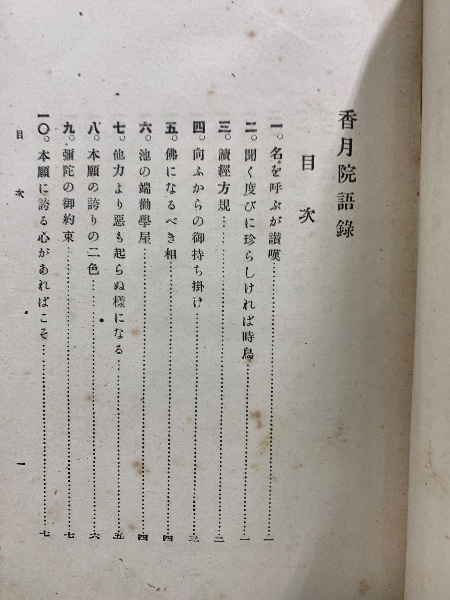 香月院語錄
目次
一。名を呼ぶが讃嘆……一
二。聞く度びに珍らしければ時鳥……一
三。讀經方規……二
四。向ふからの御持ち掛け……三
五。佛になるべき相……四
六。池の端勸學屋……四
七。他力より惡も起らぬ樣になる……五
八。本願の誇りの二色……六
九。彌陀の御約束……七
一〇。本願に誇る心があればこそ……七
目次 一